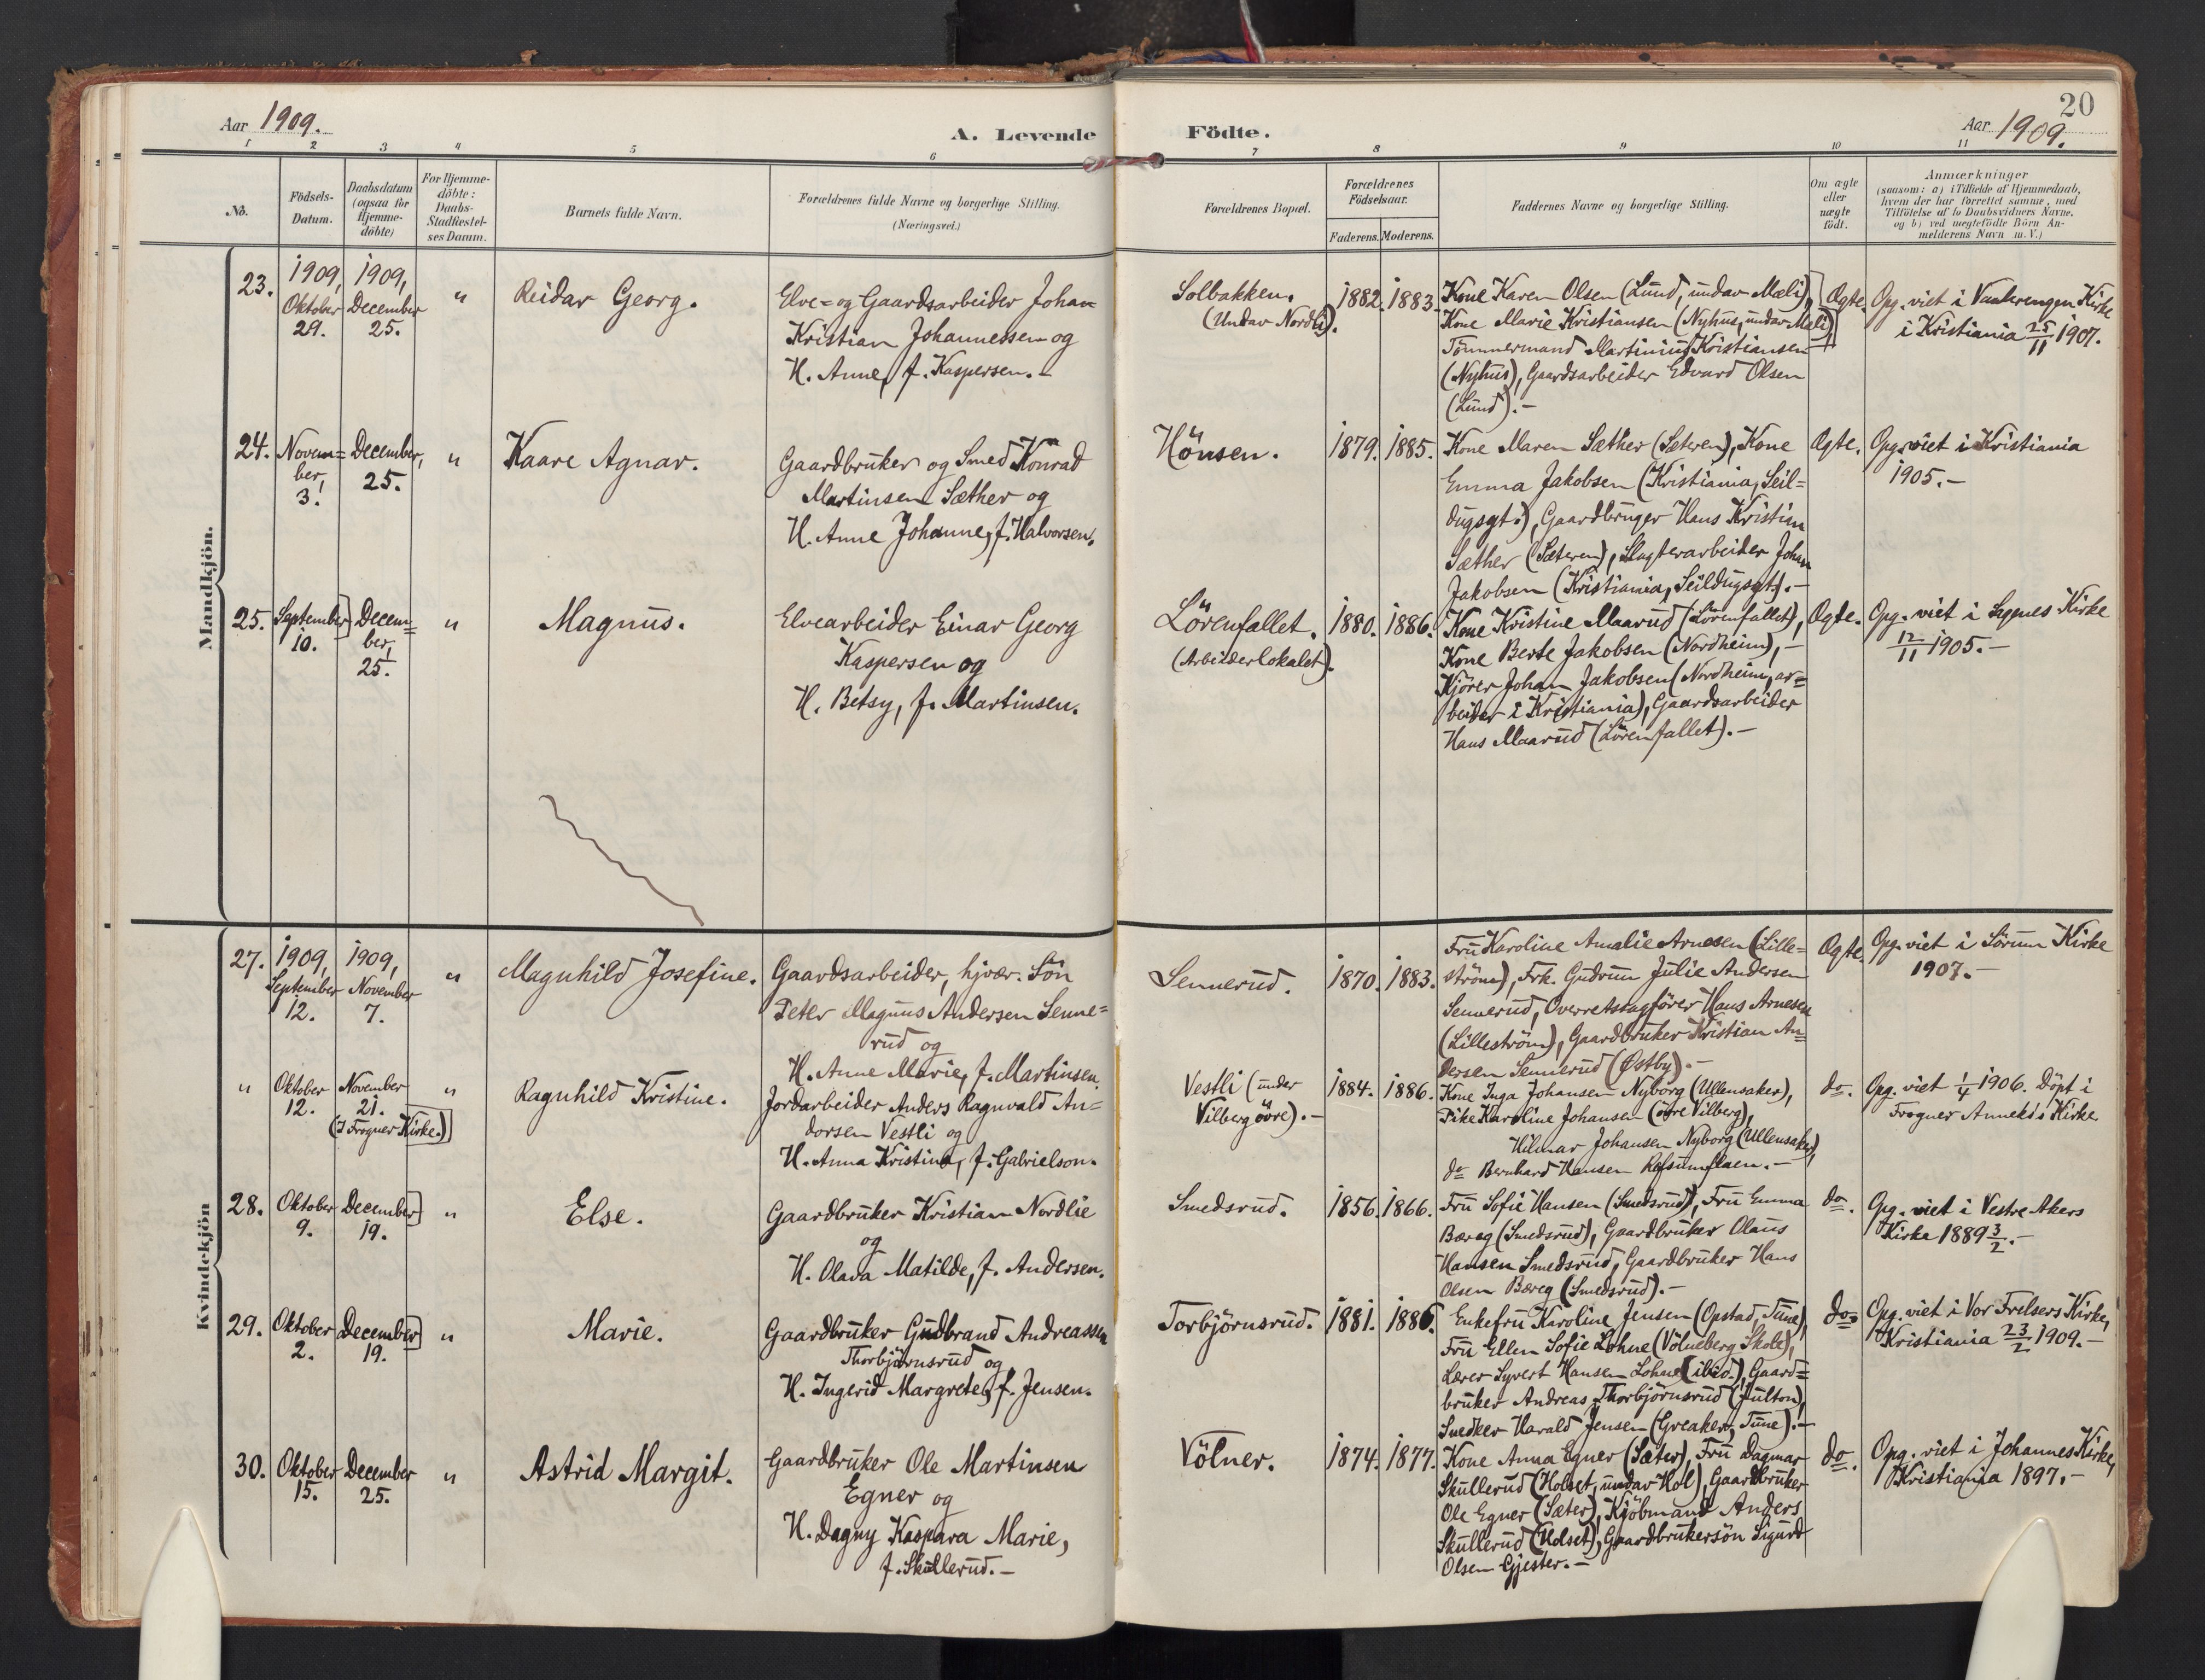 Aar 1909.
A. Levende Födte.
20
Aar 1909.
1 2 3 4 5 6 7 8 9 10 11
No.
Födsels-
Datum.
Daabsdatum
(ogsaa for
Hjemme-
döbte)
For Hjemme-
döbte:
Daabs-
Stadfæstel-
ses Datum.
Barnets fulde Navn.
Forældrenes fulde Navne og borgerlige Stilling.
(Næringsvei.)
Forældrenes Bopæl.
Forældrenes
Födselsaar.
Faderens. Moderens.
Faddernes Navne og borgerlige Stilling.
Om ægte
eller
uægte
födt.
Anmærkninger
(saasom: a) i Tilfælde af Hjemmedaab,
hvem der har forrettet samme, med
Tilföielse af to Daabsvidners Navne,
og b) ved uægtefödte Börn An-
melderens Navn m. V.)
Mandkjön.
23.
1909,
Oktober
29.
1909,
December
25.
"
Reidar Georg.
Elve- og Gaardsarbeider Johan
Kristian Johannessen og
H. Anne, f. Kaspersen.-
Solbakken.
(Undar Nordli).
1882. 1883.
Kone Karen Olsen (Lund, undar Mæli),
Kone Marie Kristiansen (Nyhus, undar Mæli),
Tömmermand Martinius Kristiansen
(Nyhus), Gaardsarbeider Edvard Olsen
(Lund).-
Ægte.
Opg. viet i Vaalerengen Kirke
i Kristiania 25/11 1907.
24.
Novem=
ber,
3.
December,
25.
"
Kaare Agnar.
Gaardbruker og Smed Konrad
Martinsen Sæther og
H. Anne Johanne, f. Halvorsen.
Hönsen.
1879. 1885.
Kone Maren Sæther (Sæteren), Kone
Emma Jakobsen (Kristiania, Seil=
dugsgt.), Gaardbruger Hans Kristian
Sæther (Sæteren), Slagterarbeider Johan
Jakobsen (Kristiania, Seildugsgt.).-
Ægte.
Opg. viet i Kristiania
1905.-
25.
September
10.
Decem=
ber,
25.
"
Magnus.
Elvearbeider Einar Georg
Kaspersen og
H. Betsy, f. Martinsen.
Lörenfallet.
(Arbeiderlokalet).
1880. 1886.
Kone Kristine Maarud (Lörenfallet),
Kone Berte Jakobsen (Nordheim),-
Kjörer Johan Jakobsen (Nordheim, ar=
beider i Kristiania), Gaardsarbeider
Hans Maarud (Lörenfallet).-
Ægte.
Opg. viet i Kirke
12/11 1905.-
Kvindekjön
27.
1909,
September
12.
1909,
November
7.
"
Magnhild Josefine.
Gaardsarbeider, hjvær. Sön
Peter Magnus Andersen Senne=
rud og
H. Anne Marie, f. Martinsen.
Sennerud.
1870. 1883.
Fru Karoline Amalie Arnesen (Lille=
ström), Frk. Gudrun Julie Andersen
Sennerud, Overretssagförer Hans Arnesen
(Lilleström), Gaardbruker Kristian An=
dersen Sennerud (Østby).-
Ægte.
Opg. viet i Sörum Kirke
1907.-
"
Oktober
12.
November
21.
(I Frogner Kirke.)
"
Ragnhild Kristine.
Jordarbeider Anders Ragnvald An=
dorsen Vestli og
H. Anna Kristine, f. Gabrielson.
Vestli (under
Vilberg övre).-
1884. 1886.
Kone Inga Johansen Nyborg (Ullensaker),
Pike Karoline Johansen (övre Vilberg),
Hilmar Johansen Nyborg (Ullensaker),
do Bernhard Hansen .-
do.
Opg. viet 1/4 1906. Döpt i
Frogner Anneks's Kirke
28.
Oktober
9.
December
19.
"
Else.
Gaardbruker Kristian Nordlie
og
H. Olava Matilde, f. Andersen.
Smedsrud.
1856. 1866.
Fru Sofie Hansen (Smedsrud), Fru Emma
Bæreg (Smedsrud), Gaardbruker Olaus
Hansen Smedsrud, Gaardbruker Hans
Olsen Bæreg (Smedsrud).-
do.
Opg. viet i Vestre Akers
Kirke 1889 3/2.-
29.
Oktober
2.
December
19.
"
Marie.
Gaardbruker Gudbrand Andreassen
Thorbjörnsrud og
H. Ingerid Margrete, f. Jensen.
Torbjörnsrud.
1881. 1886.
Enkefru Karoline Jensen (Opstad, Tune),
Fru Ellen Sofie Lohne (Völneberg Skole),
Lærer Syvert Hansen Lohne (ibid.), Gaard=
bruker Andreas Thorbjörnsrud (Jülton),
Snedker Harald Jensen (Greaker, Tune).-
do.
Opg. viet i Vor Frelsers Kirke,
Kristiania 23/2 1909.-
30.
Oktober
15.
December
25.
"
Astrid Margit.
Gaardbruker Ole Martinsen
Egner og
H. Dagny Kaspara Marie,
f. Skullerud.-
Völner.
1874. 1877.
Kone Anna Egner (Sæter), Fru Dagmar
Skullerud (Holset, undar Hol), Gaardbruker
Ole Egner (Sæter), Kjöbmand Anders
Skullerud (Holset), Gaardbrukersön Sigurd
Olsen Gjester.-
do.
Opg. viet i Johannes Kirke,
Kristiania 1897.-